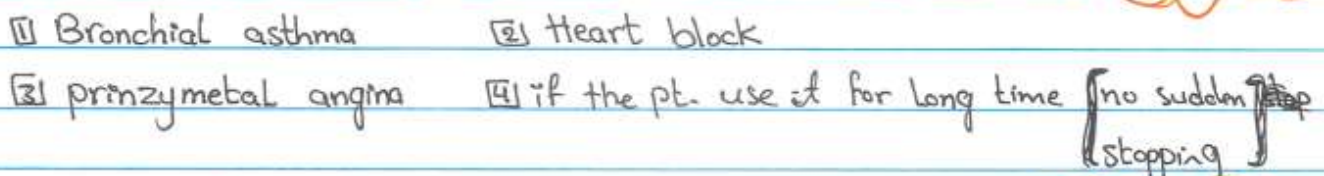 1 Bronchial asthma 2 Heart block
3 prinzymetal angina 4 if the pt. use it for long time [no sudden] stop
stopping